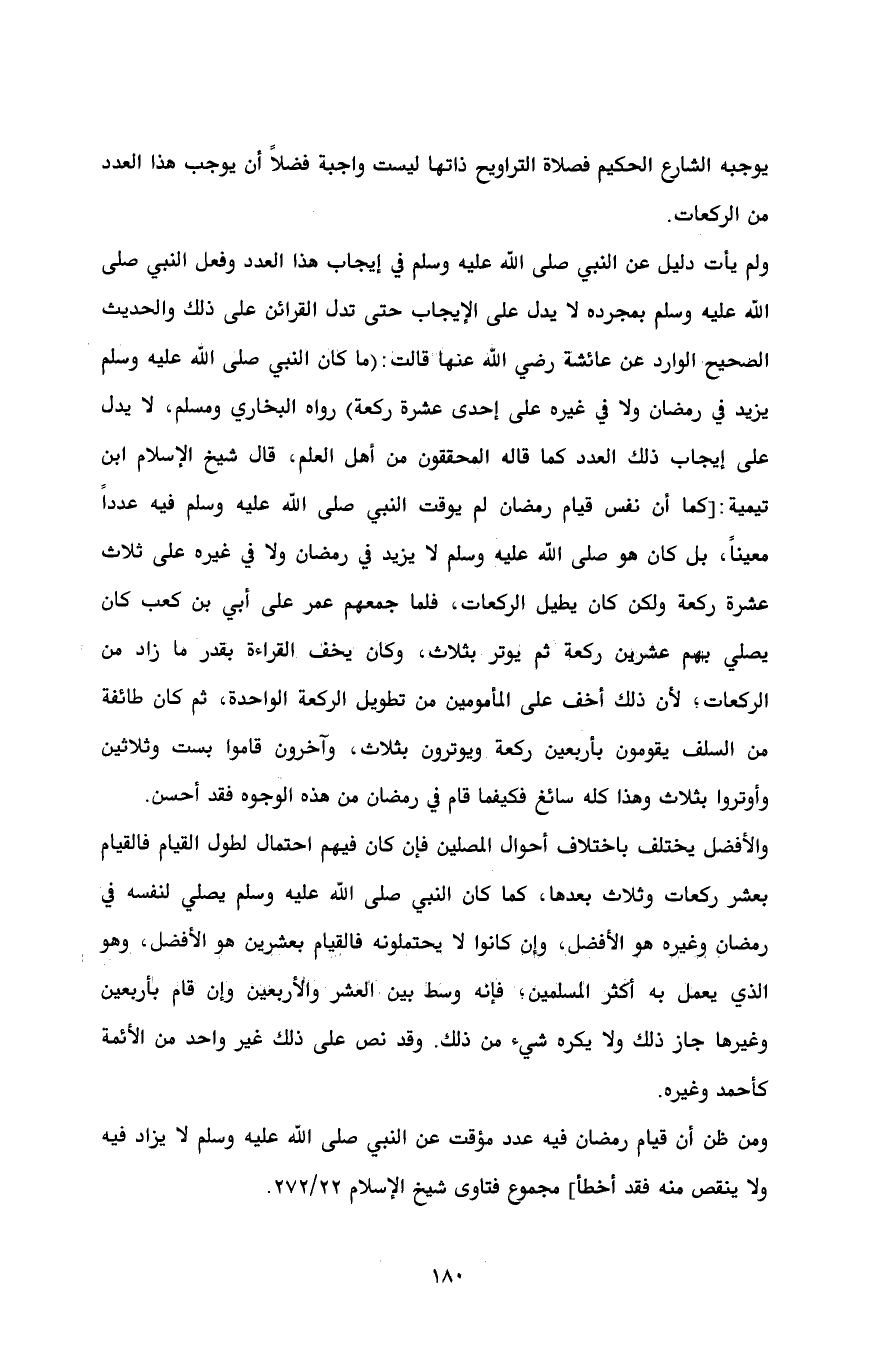 يوجبه الشارع الحكيم فصلاة التراويح ذاتها ليست واجبة فضلاً أن يوجب هذا العدد
من الركعات.
ولم يأت دليل عن النبي صلى الله عليه وسلم في إيجاب هذا العدد وفعل النبي صلى
الله عليه وسلم بمجرده لا يدل على الإيجاب حتى تدل القرائن على ذلك والحديث
الصحيح الوارد عن عائشة رضي الله عنها قالت:(ما كان النبي صلى الله عليه وسلم
يزيد في رمضان ولا في غيره على إحدى عشرة ركعة) رواه البخاري ومسلم، لا يدل
على إيجاب ذلك العدد كما قاله المحققون من أهل العلم، قال شيخ الإسلام ابن
تيمية:[كما أن نفس قيام رمضان لم يوقت النبي صلى الله عليه وسلم فيه عدداً
معيناً، بل كان هو صلى الله عليه وسلم لا يزيد في رمضان ولا في غيره على ثلاث
عشرة ركعة ولكن كان يطيل الركعات، فلما جمعهم عمر على أبي بن كعب كان
يصلي بهم عشرين ركعة ثم يوتر بثلاث، وكان يخف القراءة بقدر ما زاد من
الركعات؛ لأن ذلك أخف على المأمومين من تطويل الركعة الواحدة، ثم كان طائفة
من السلف يقومون بأربعين ركعة ويوترون بثلاث، وآخرون قاموا بست وثلاثين
وأوتروا بثلاث وهذا كله سائغ فكيفما قام في رمضان من هذه الوجوه فقد أحسن.
والأفضل يختلف باختلاف أحوال المصلين فإن كان فيهم احتمال لطول القيام فالقيام
بعشر ركعات وثلاث بعدها، كما كان النبي صلى الله عليه وسلم يصلي لنفسه في
رمضان وغيره هو الأفضل، وإن كانوا لا يحتملونه فالقيام بعشرين هو الأفضل، وهو
الذي يعمل به أكثر المسلمين؛ فإنه وسط بين العشر والأربعين وإن قام بأربعين
وغيرها جاز ذلك ولا يكره شيء من ذلك. وقد نص على ذلك غير واحد من الأئمة
كأحمد وغيره.
ومن ظن أن قيام رمضان فيه عدد مؤقت عن النبي صلى الله عليه وسلم لا يزاد فيه
ولا ينقص منه فقد أخطأ] مجموع فتاوى شيخ الإسلام ٢٧٢/٢٢.
١٨٠